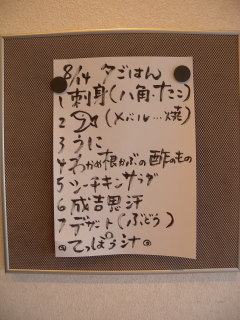 8/14 夕ごはん
1 刺身(八角・たこ)
2 (メバル…焼)
3 うに
4 わかめ根かぶの酢のもの
5 シーチキンサラダ
6 成吉思汗
7 デザート(ぶどう)
◎てっぽう汁◎